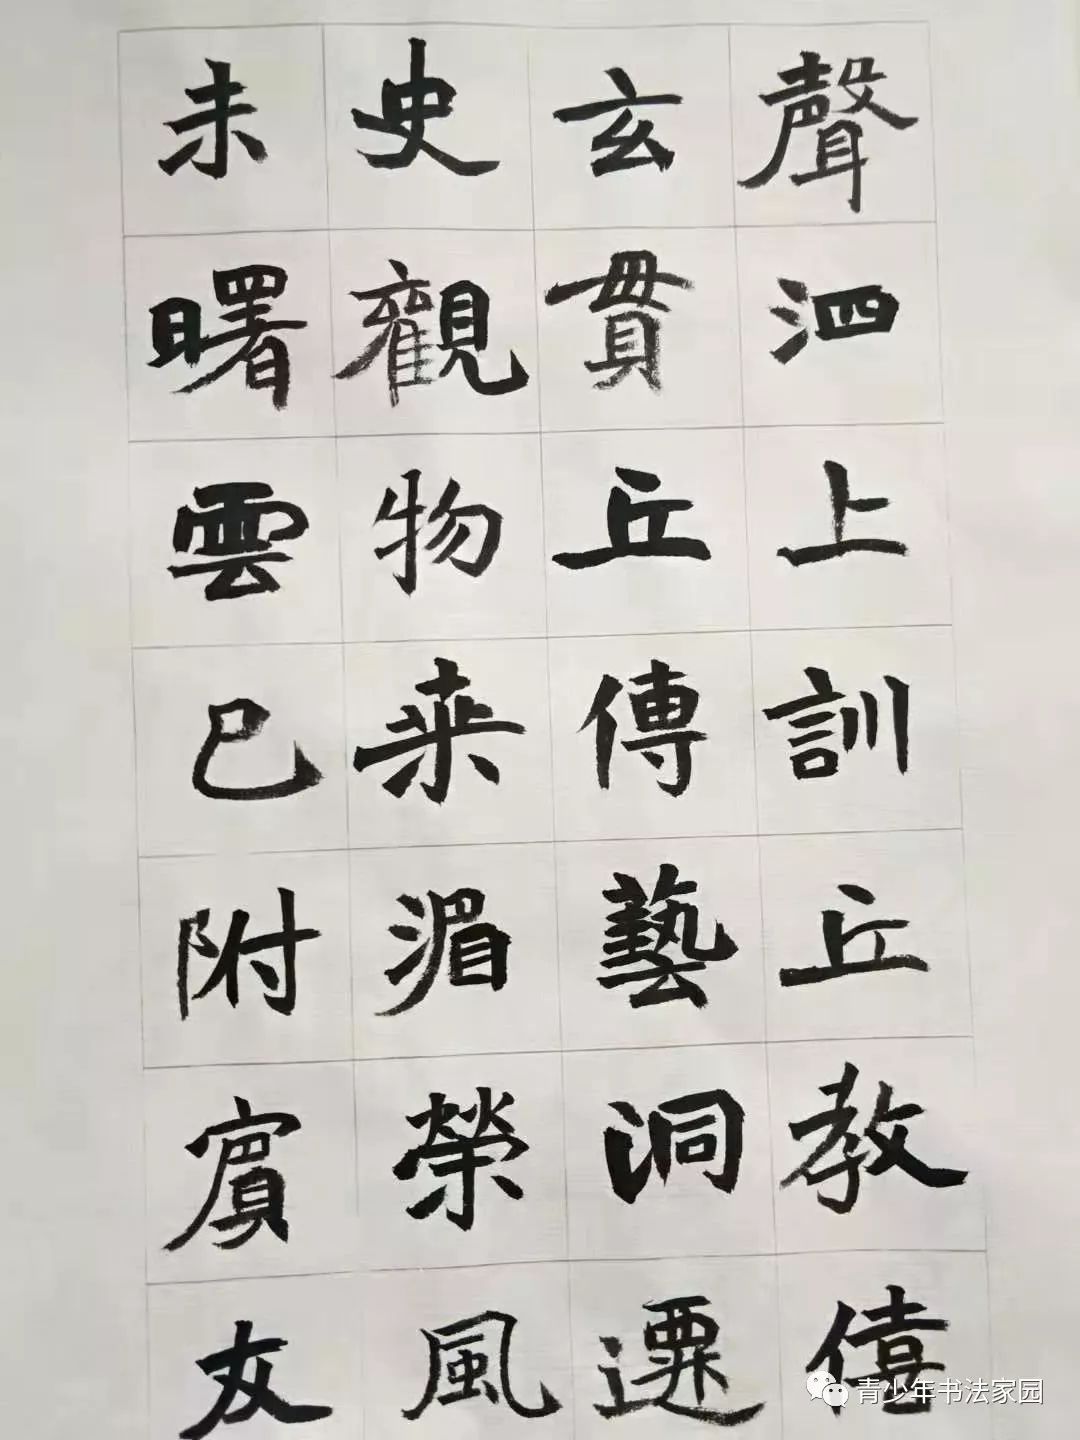 聲泗上訓丘教僖
玄貫丘傳藝洞遷
史觀物来湄榮風
未曙雲已附賓友
青少年书法家园